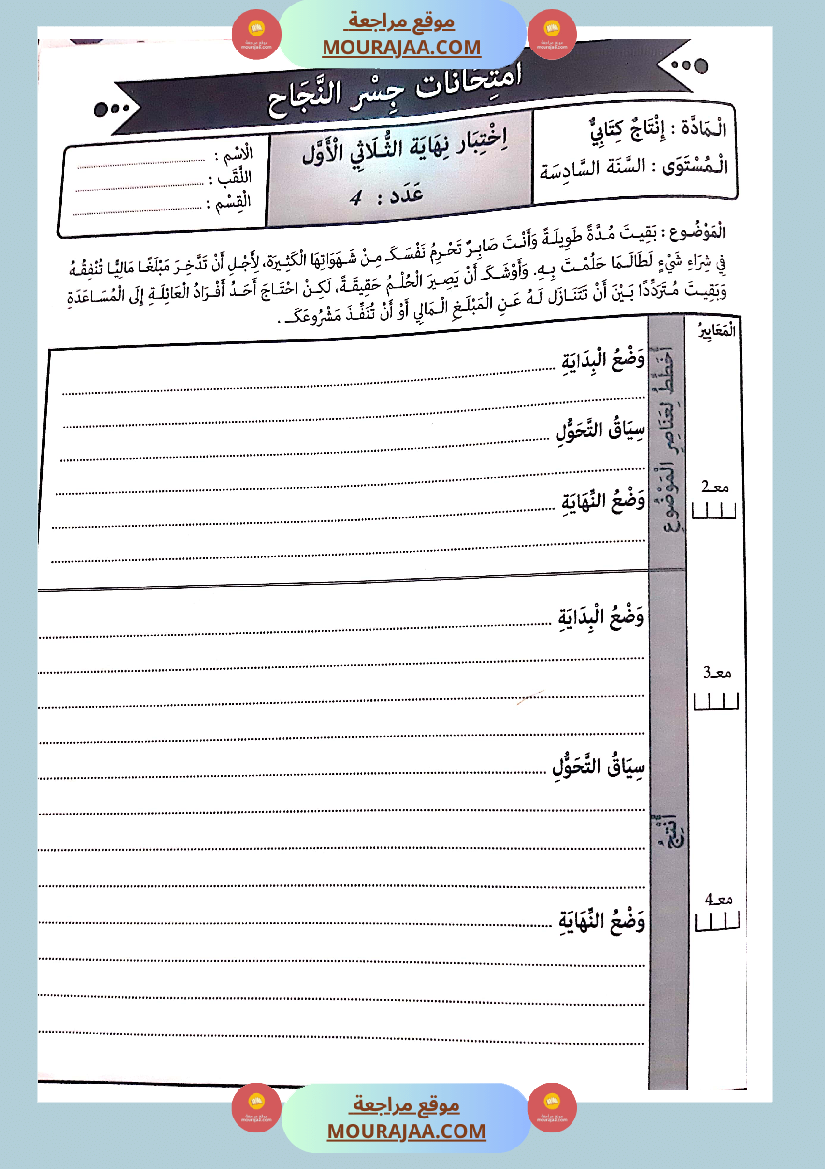 موقع مراجعة
MOURAJAA.COM
امْتِحَانَات جِسْر النَّجَاح
الْمَادَّة : إِنْتَاجٌ كِتَابِيٌّ
الْمُسْتَوَى : السَّنَة السَّادِسَة
اِخْتِبَار نِهَايَة الثُّلَاثِي الْأَوَّل
عَدَد : 4
الْاسْم :
اللَّقَب :
الْقِسْم :
الْمَوْضُوع : بَقِيتَ مُدَّةً طَوِيلَةً وَأَنْتَ صَابِرٌ تَحْرِمُ نَفْسَكَ مِنْ شَهَوَاتِهَا الْكَثِيرَة، لِأَجْلِ أَنْ تَدَّخِرَ مَبْلَغًا مَالِيًّا تُنْفِقُهُ
فِي شِرَاءِ شَيْءٍ لَطَالَمَا حَلُمْتَ بِهِ. وَأَوْشَكَ أَنْ يَصِيرَ الْحُلْمُ حَقِيقَةً، لَكِنْ احْتَاجَ أَحَدُ أَفْرَادُ الْعَائِلَةِ إِلَى الْمُسَاعَدَةِ
وَبَقِيتَ مُتَرَدِّدًا بَيْنَ أَنْ تَتَنَازَل لَهُ عَنِ الْمَبْلَغِ الْمَالِي أَوْ أَنْ تُنَفِّذَ مَشْرُوعَكَ .
الْمَعَايِيرُ
أُخَطِّطُ لِعَنَاصِرِ الْمَوْضُوعِ
وَضْعُ الْبِدَايَةِ
سِيَاقُ التَّحَوُّلِ
معـ2
وَضْعُ النِّهَايَةِ
وَضْعُ الْبِدَايَةِ
معـ3
سِيَاقُ التَّحَوُّلِ
أُنْتِجُ
معـ4
وَضْعُ النِّهَايَةِ
موقع مراجعة
MOURAJAA.COM